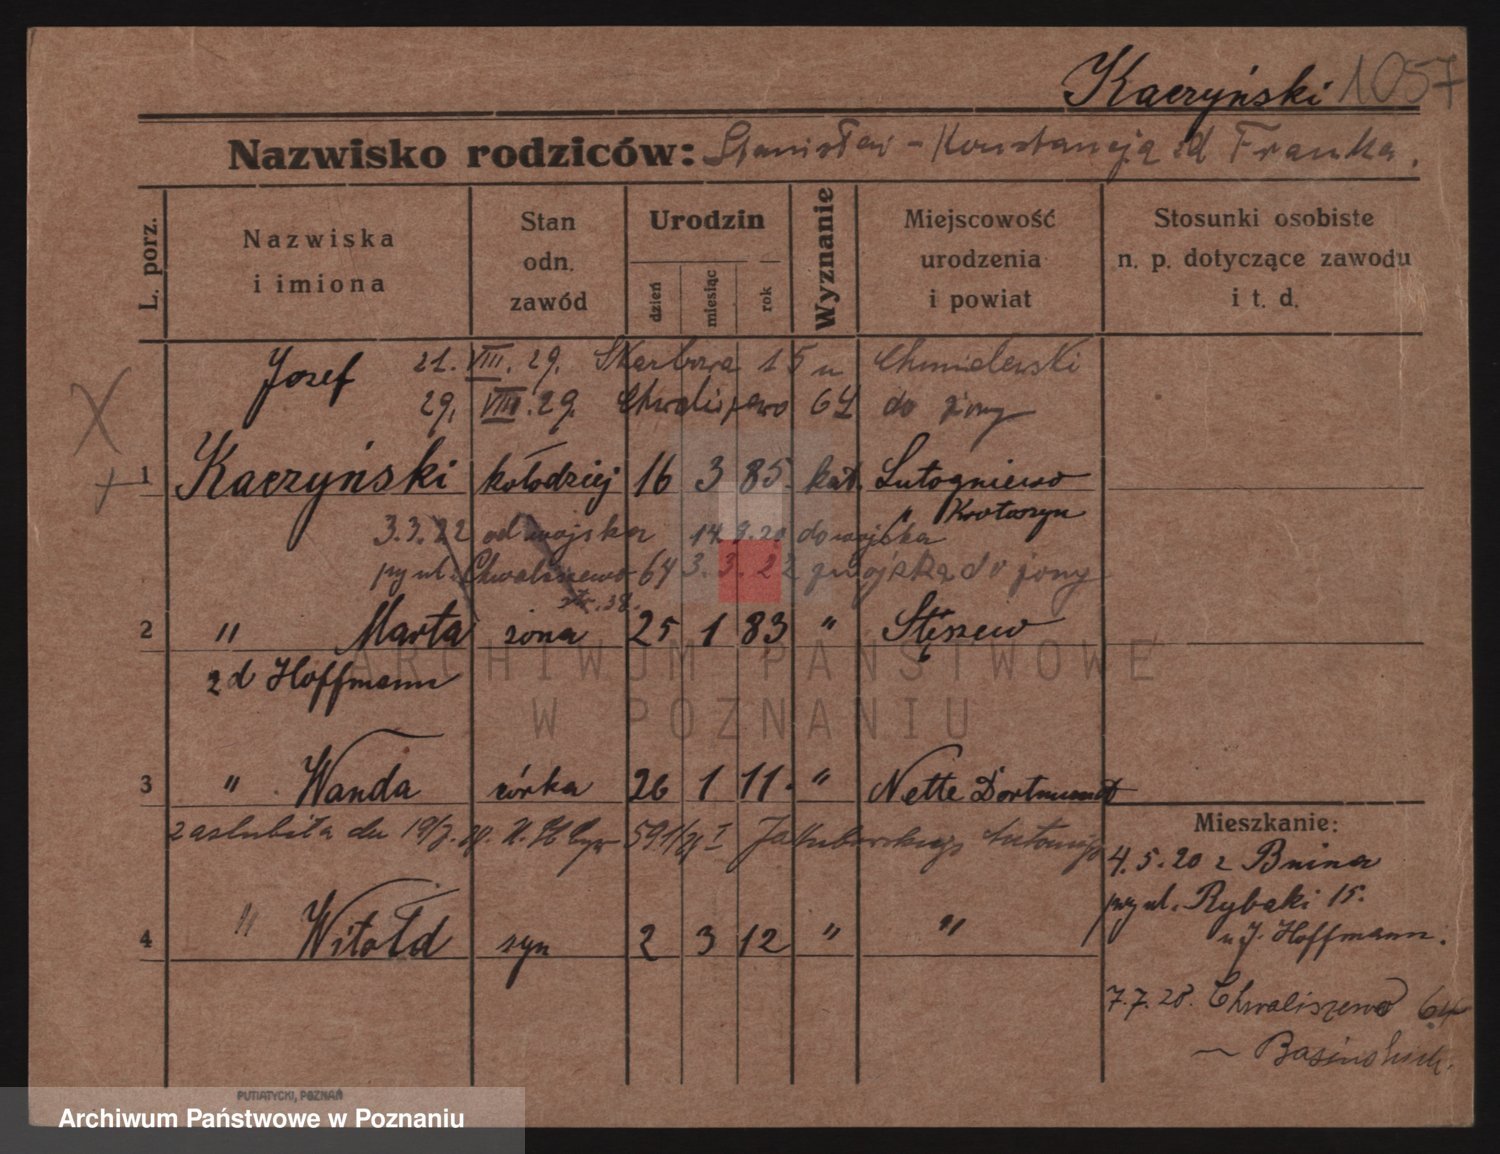 Kaczyński 1057
Nazwisko rodziców: Stanisław - Konstancja zd Franka.
L. porz.
Nazwiska
i imiona
Stan
odn.
zawód
Urodzin
dzień
miesiąc
rok
Wyznanie
Miejscowość
urodzenia
i powiat
Stosunki osobiste
n. p. dotyczące zawodu
i t. d.
Józef 21. VIII. 29. Skarbowa 15 u Chmielewski
29. VIII. 29. Chwaliszewo 64 do żony
X
+ 1 Kaczyński kołodziej 16 3 85. kat. Lutogniewo
" Krotoszyn
3.3.22 od wojska 14.9.20 do wojska
przy ul. Chwaliszewo 64 3.3.22 z wojska do żony
str. 38.
2 " Marta żona 25 1 83 " Stęszew
zd Hoffmann
3 " Wanda córka 26 1 11. " Nette Dortmund
zaślubiła dn 19/7. 591/31 I Jakubowskiego Antoniego
4 " Witold syn 2 3 12 " "
Mieszkanie:
4.5.20 z Bnina
przy ul. Rybaki 15.
u J. Hoffmann.
7.7.28. Chwaliszewo 64
PUTIATYCKI, POZNAŃ
ARCHIWUM PAŃSTWOWE
W POZNANIU
Archiwum Państwowe w Poznaniu